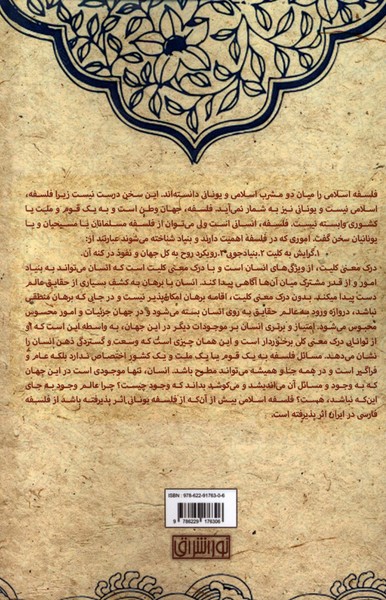 فلسفه اسلامی را میان دو مشرب اسلامی و یونانی دانسته‌اند. این سخن درست نیست زیرا فلسفه،
اسلامی نیست و یونانی نیز به شمار نمی‌آید. فلسفه، جهان وطن است و به یک قوم و ملیت یا
کشوری وابسته نیست. فلسفه، انسانی است ولی می‌توان از فلسفه مسلمانان یا مسیحیان و یا
یونانیان سخن گفت. اموری که در فلسفه اهمیت دارند و بنیاد شناخته می‌شوند عبارتند از:
۱.گرایش به کلیت ۲.بنیادجویی ۳.رویکرد روح به کل جهان و نفوذ در کنه آن.
درک معنی کلیت، از ویژگی‌های انسان است و با درک معنی کلیت است که انسان می‌تواند به بنیاد
امور و از قدر مشترک میان آن‌ها آگاهی پیدا کند. انسان با برهان به کشف بسیاری از حقایق عالم
دست پیدا میکند. بدون درک معنی کلیت، اقامه برهان امکان‌پذیر نیست و در جایی که برهان منطقی
نباشد، دروازه ورود به عالم حقایق به روی انسان بسته می‌شود و در جهان جزئیات و امور محسوس
محبوس می‌شود. امتیاز و برتری انسان بر موجودات دیگر در این جهان، به واسطه این است که او
از توانای درک معنی کلی برخوردار است و این همان چیزی است که وسعت و گستردگی ذهن انسان را
نشان می‌دهد. مسائل فلسفه به یک قوم یا یک ملیت و یک کشور اختصاص ندارد بلکه عام و
فراگیر است و در همه جا و همیشه می‌تواند مطرح باشد. انسان، تنها موجودی است در این جهان
که به وجود و مسائل آن می‌اندیشد و می‌کوشد بداند که وجود چیست؟ چرا عالم وجود به جای
این‌که نباشد، هست؟ فلسفه اسلامی بیش از آن‌که از فلسفه یونانی اثر پذیرفته باشد از فلسفه
فارسی در ایران اثر پذیرفته است.
ISBN : 978-622-91763-0-6
9 786229 176306
نور اشراق